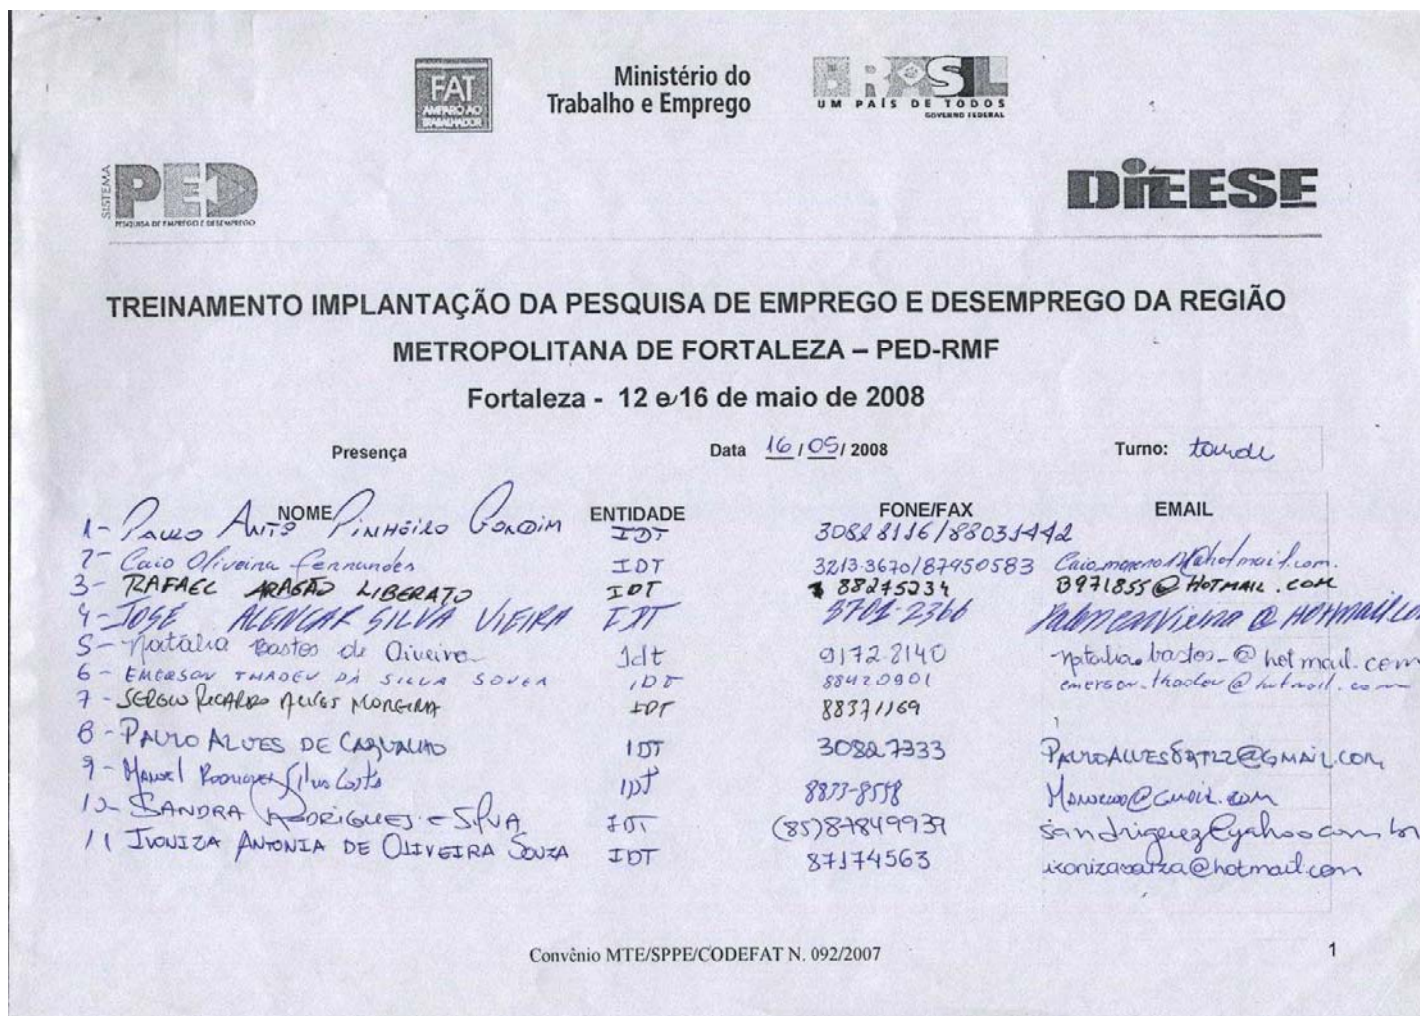 FAT
AMPARO AO
TRABALHADOR
Ministério do
Trabalho e Emprego
BRASIL
UM PAÍS DE TODOS
GOVERNO FEDERAL
SISTEMA
PED
PESQUISA DE EMPREGO E DESEMPREGO
DIEESE
TREINAMENTO IMPLANTAÇÃO DA PESQUISA DE EMPREGO E DESEMPREGO DA REGIÃO
METROPOLITANA DE FORTALEZA – PED-RMF
Fortaleza - 12 e 16 de maio de 2008
Presença Data 16/05/2008 Turno: tarde
NOME ENTIDADE FONE/FAX EMAIL
1- Paulo Antº Pinheiro Gondim IDT 30828116/88031442
2- Caio Oliveira Fernandes IDT 3213-3670/87950583
3- RAFAEL ARAGÃO LIBERATO IDT 88275234 B971855@HOTMAIL.COM
4- JOSE ALENCAR SILVA VIEIRA IDT 8701-2366 @HOTMAIL.CO
5- Natália Bastos de Oliveira Idt 9172.8140 natalia.bastos_@hotmail.com
6- EMERSON THADEU DA SILVA SOUZA IDT 88420901 emerson.thadeu@hotmail.com
7- SERGIO RICARDO ALVES MOREIRA IDT 88371169
8- PAULO ALVES DE CARVALHO IDT 30827333
9- Manuel Rodrigues Silva Costa IDT 8833-8558
10- SANDRA RODRIGUES E SILVA IDT (85)87849939
11 IVONIZA ANTONIA DE OLIVEIRA SOUZA IDT 87174563 ivonizasouza@hotmail.com
Convênio MTE/SPPE/CODEFAT N. 092/2007
1